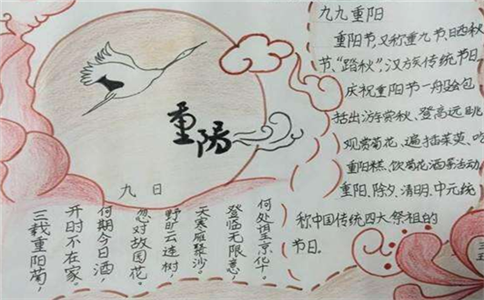 重陽
九日
三载重阳菊,
开时不在家。
何期今日酒,
忽对故园花。
野旷云连树,
天寒雁聚沙。
登临无限意,
何处望京华。
九九重阳
重阳节又称重九节日西秋
节、“踏秋”,汉族传统节日
庆祝重阳节一般会包
括出游赏秋、登高远眺
观赏菊花、遍插茱萸、吃
重阳糕、饮菊花酒等活动
重阳、除夕、清明、中元统
称中国传统四大祭祖的
节日。